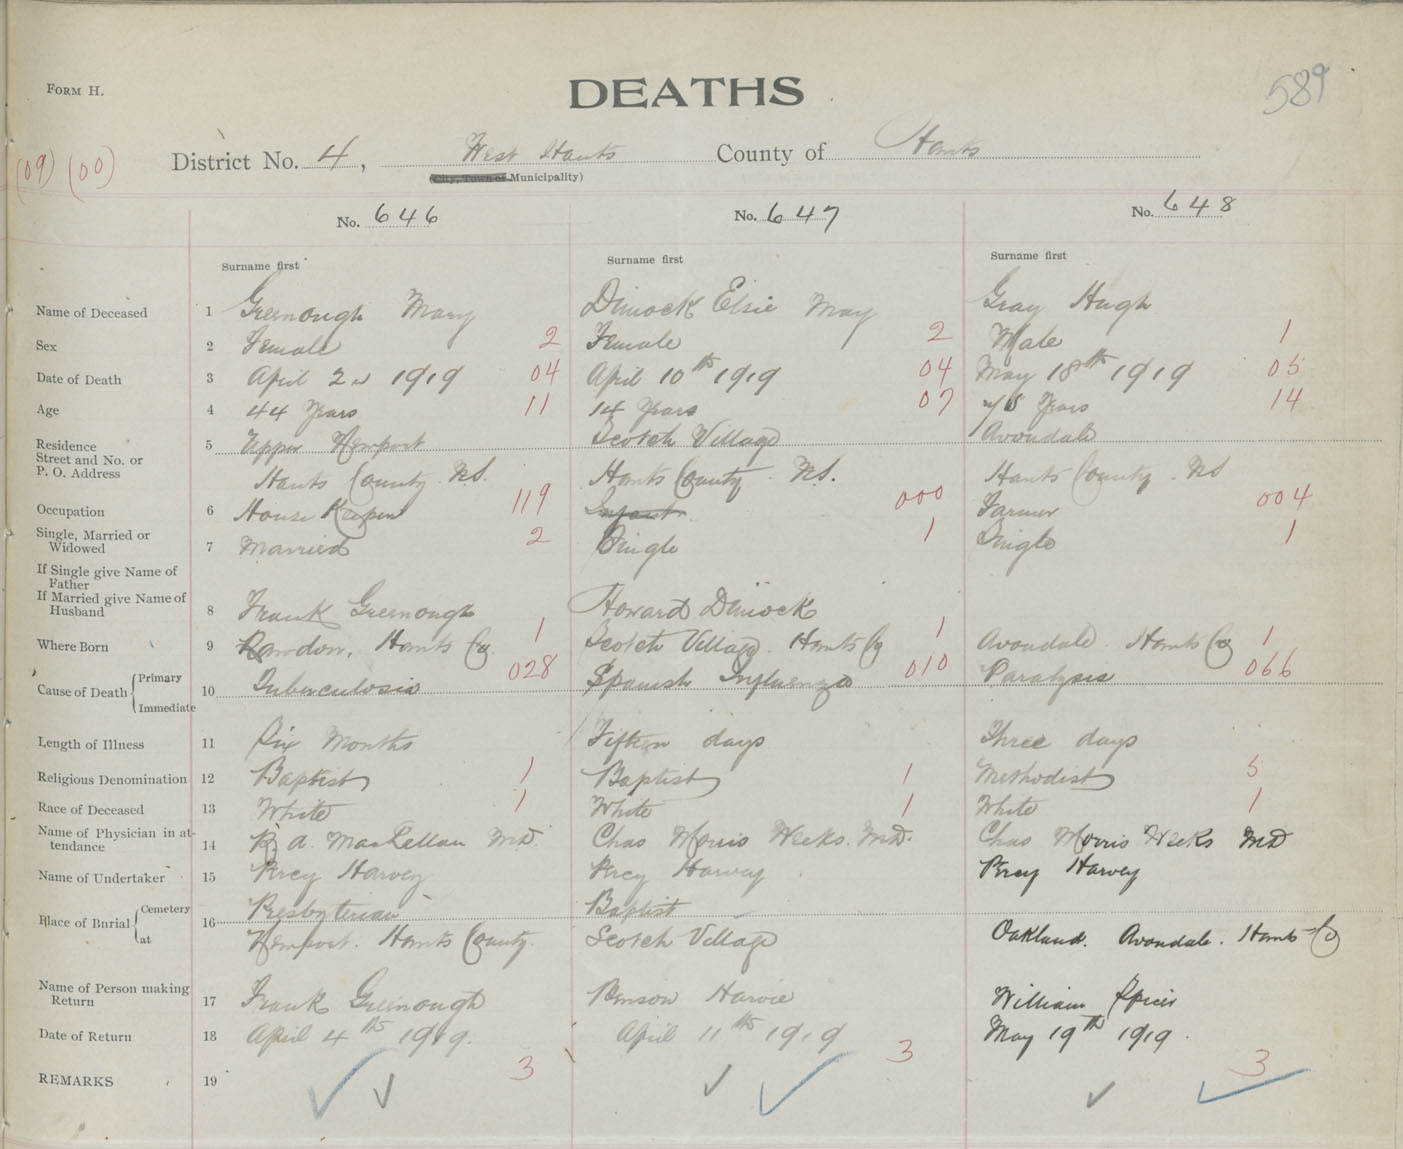 FORM H.
DEATHS
589
(09) (00)
District No. 4, West Hants County of Hants
(City, Town or Municipality)
No. 646
No. 647
No. 648
Surname first
Surname first
Surname first
Name of Deceased 1 Greenough Mary Dimock Elsie May Gray Hugh
Sex 2 Female 2 Female 2 Male 1
Date of Death 3 April 2nd 1919 04 April 10th 1919 04 May 18th 1919 05
Age 4 44 Years 11 14 Years 07 Years 14
Residence
Street and No. or
P. O. Address
5 Upper Kemport Scotch Village Avondale
Hants County. N.S. Hants County. N.S. Hants County. NS
Occupation 6 House Keeper 119 Infant 000 Farmer 004
Single, Married or
Widowed
7 Married 2 Single 1 Single 1
If Single give Name of
Father
If Married give Name of
Husband
8 Frank Greenough Howard Dimock
Where Born 9 Rawdon, Hants Co. 1 Scotch Village. Hants Co 1 Avondale. Hants Co 1
Cause of Death Primary
Immediate
10 Tuberculosis 028 Spanish Influenza 010 Paralysis 066
Length of Illness 11 Six Months Fifteen days Three days
Religious Denomination 12 Baptist 1 Baptist 1 Methodist 5
Race of Deceased 13 White 1 White 1 White 1
Name of Physician in at-
tendance
14 A. MacLellan M.D. Chas Morris Weeks. M.D. Chas Morris Weeks MD
Name of Undertaker 15 Percy Harvey Percy Harvey Percy Harvey
Place of Burial Cemetery
at
16 Presbyterian Baptist
Kemport. Hants County. Scotch Village Oakland. Avondale. Hants Co
Name of Person making
Return
17 Frank Greenough Benson Harvie William Spicer
Date of Return 18 April 4th 1919. April 11th 1919 May 19th 1919.
3 3 3
REMARKS 19